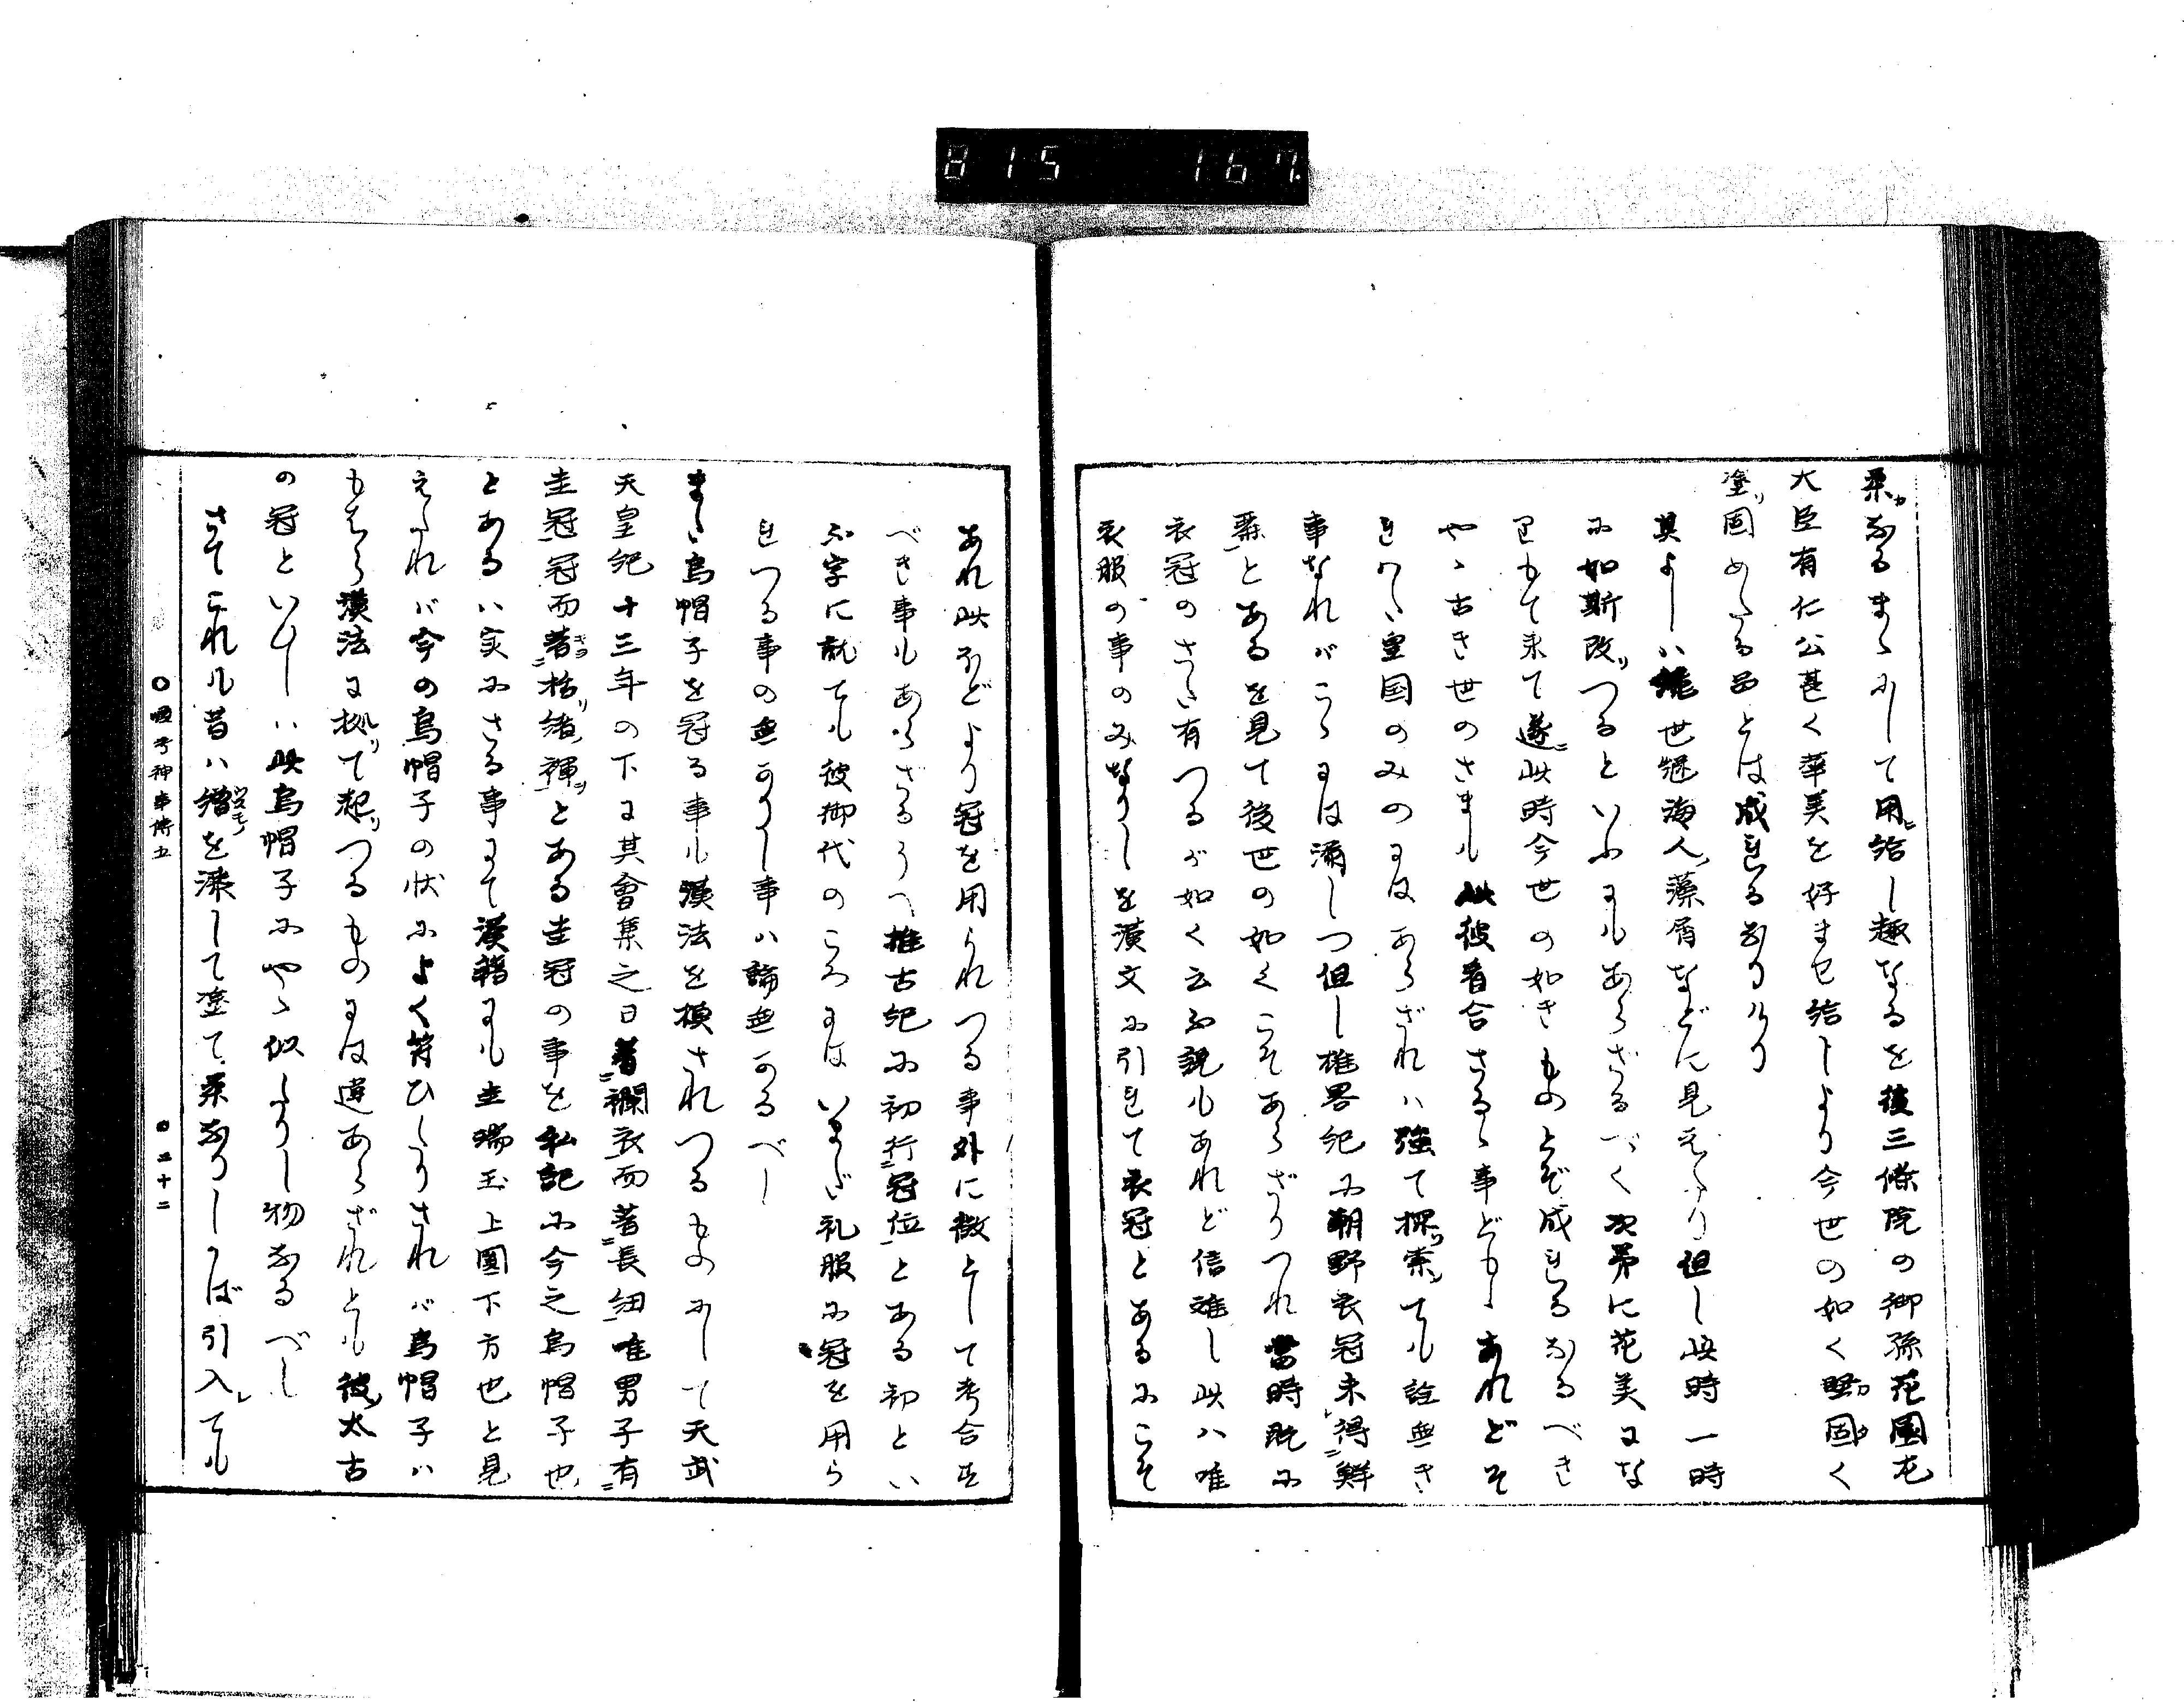 815 167
柔なるまゝにして用給し趣なるを後三條院の御孫花園左
大臣有仁公甚く華美を好ませ給しより今世の如く堅固く
塗固めたる品とは成れるなりけり
其よしハ 世継 海人藻屑などに見えたり但し此時一時
に如斯改りつるといふにもあらざるべく次第に花美にな
りもて来て遂に此時今世の如きものとぞ成れるなるべき
やゝ古き世のさまも此彼看合さるゝ事どもゝあれどそ
れはた皇国のみのにはあらざれハ強て探索ても詮無き
事なれバこゝには洩しつ但し雄畧紀に朝野衣冠未得鮮
麗とあるを見て後世の如くこそあらざりつれ當時既に
衣冠のさた有つるが如く云る説もあれど信難し此ハ唯
衣服の事のみなりしを漢文に引れて衣冠とあるにこそ
あれ此ほどより冠を用られつる事外に徴として考合す
べき事もあらざるうへ推古紀に初行冠位とある初とい
ふ字に就ても彼御代のころにはいまだ礼服に冠を用ら
れつる事の無かりし事ハ論無かるべし
また烏帽子を冠る事も漢法を模されつるものにして天武
天皇紀十三年の下に其會集之日著襴衣而著長紐唯男子有
圭冠冠而著括緒褌とある圭冠の事を私記に今之烏帽子也
とあるハ実にさる事にて漢籍にも圭瑞玉上圜下方也と見
えたれバ今の烏帽子の状によく符ひたりされバ烏帽子ハ
もはら漢法に拠て起つるものには違あらざれども彼太古
の冠といひしハ此烏帽子にやゝ似たりし物なるべし
さてこれも昔ハ繒ウスモノを漆して塗て柔なりしかば引入ても
○二十二